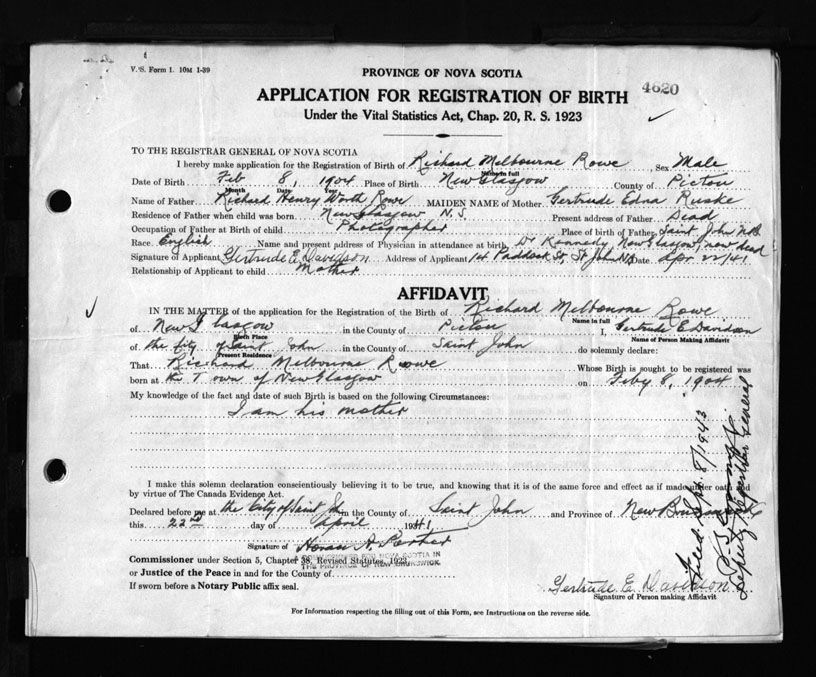 V.S. Form 1. 10M 1-39
PROVINCE OF NOVA SCOTIA
4620
APPLICATION FOR REGISTRATION OF BIRTH
Under the Vital Statistics Act, Chap. 20, R. S. 1923
TO THE REGISTRAR GENERAL OF NOVA SCOTIA
I hereby make application for the Registration of Birth of Richard Melbourne Rowe Sex Male
Name in full
Date of Birth Feb 8, 1904 Place of Birth New Glasgow County of Pictou
Month Date Year
Name of Father Richard Henry Worth Rowe MAIDEN NAME of Mother Gertrude Edna Ruske
Residence of Father when child was born New Glasgow N.S Present address of Father Dead
Occupation of Father at Birth of child Photographer Place of birth of Father Saint John N.B.
Race English Name and present address of Physician in attendance at birth Dr Kennedy, New Glasgow, now dead
Signature of Applicant Gertrude E. Davidson Address of Applicant 14 Paddock St, St John NB Date Apr 22/41
Relationship of Applicant to child Mother
AFFIDAVIT
IN THE MATTER of the application for the Registration of the Birth of Richard Melbourne Rowe
Name in full
of New Glasgow in the County of Pictou I, Gertrude E Davidson
Birth Place Name of Person Making Affidavit
of the City of Saint John in the County of Saint John do solemnly declare:
Present Residence
That Richard Melbourne Rowe Whose Birth is sought to be registered was
born at the Town of New Glasgow on Feby 8, 1904
My knowledge of the fact and date of such Birth is based on the following Circumstances:
I am his mother
I make this solemn declaration conscientiously believing it to be true, and knowing that it is of the same force and effect as if made under oath and
by virtue of The Canada Evidence Act.
Declared before me at the City of Saint John in the County of Saint John and Province of New Brunswick
this 22nd day of April 1941
Signature of Horace A. Porter
A COMMISSIONER FOR NOVA SCOTIA IN
THE PROVINCE OF NEW BRUNSWICK.
Commissioner under Section 5, Chapter 38, Revised Statutes, 1923
or Justice of the Peace in and for the County of
If sworn before a Notary Public affix seal.
Gertrude E. Davidson
Signature of Person making Affidavit
For Information respecting the filling out of this Form, see Instructions on the reverse side.
8/1943
Deputy Registrar General